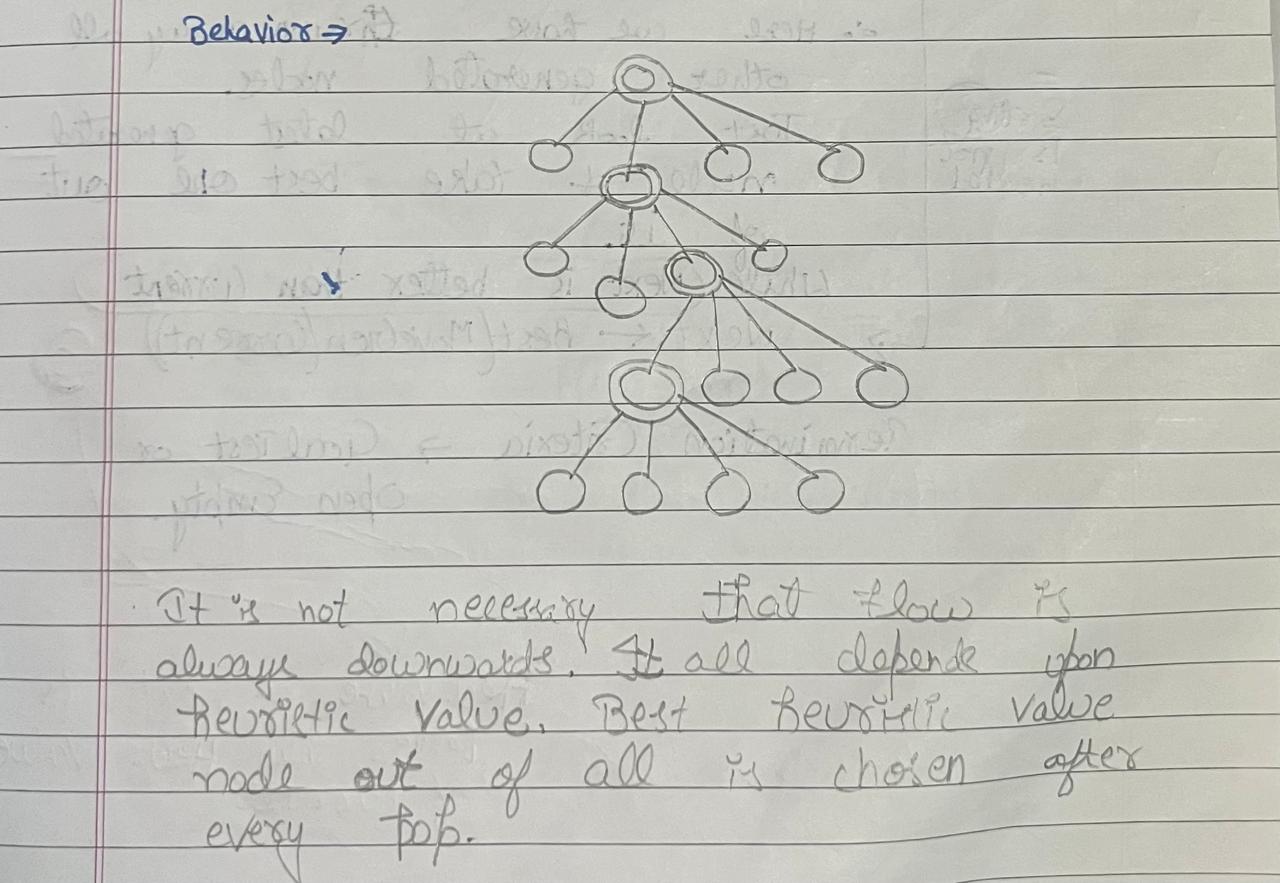 Behavior →
It is not necessary that flow is
always downwards. It all depends upon
heuristic value. Best heuristic value
node out of all is chosen after
every pop.